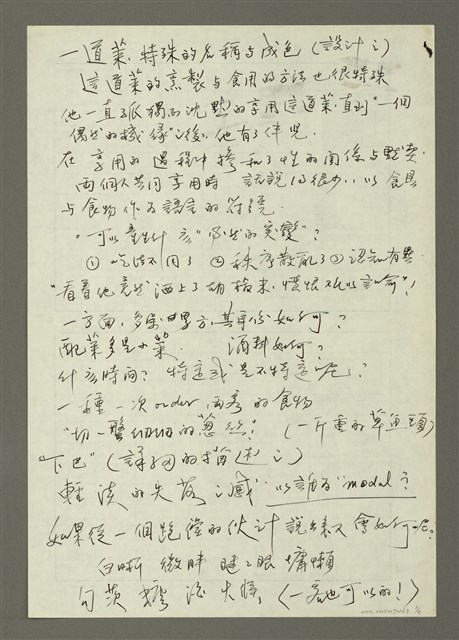 一道菜、特殊的名稱与成色（設計之）
這道菜的烹製与食用的方法也很特殊
他一直孤獨而沈默的享用這道菜，直到"一個
偶然的機緣"之後，他有了伴兒．
在享用的過程中摻和了性的關係与默契．
兩個人共同享用時 話說的很少，以食具
与食物作為語言的符號．
"可以產生什麼"必然的突變"？
① 吃法不同了 ② 秩序散亂了 ③ 認知有異
"看著他竟然洒上了胡椒末，憤恨難以言喻"！
一方面，多寡 男方，其身份如何？
配菜多是小菜． 酒料如何？
什麼時間？ 特定或是不特定呢？
一種一次order 兩客的食物
"切一盤細細的蔥絲！ （一斤重的草魚頭）
下巴"
輕淡的失落之感" 以誰為"modal？
如果從一個跑堂的伙計說出來又會如何呢？
白晰 微胖 瞇眼 慵懶
勾芡 （一客也可以的！）